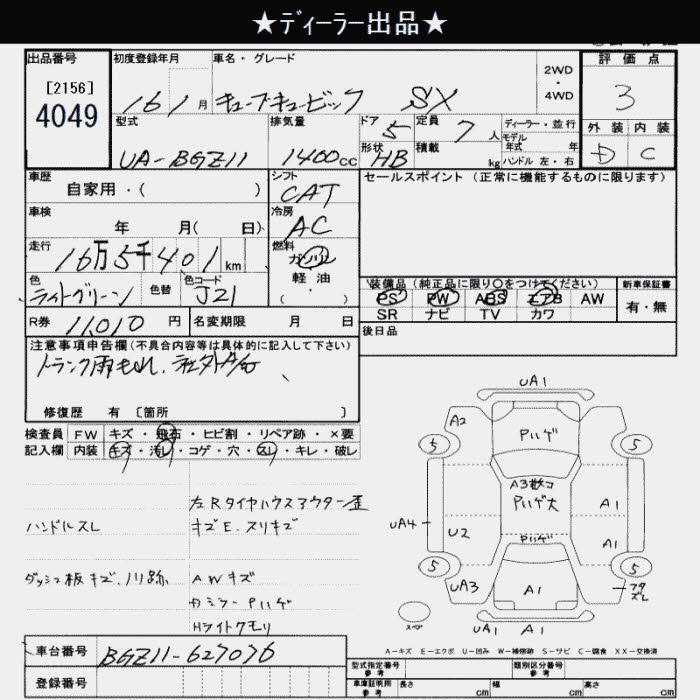 ★ディーラー出品★
出品番号
[2156]
4049
初度登録年月
16 1 月
車名・グレード
キューブキュービック SX
2WD
・
4WD
評価点
3
外装 内装
D C
型式
UA-BGZ11
排気量
1400 cc
ドア 5
形状 HB
定員 7 人
積載 kg
ディーラー・並行
モデル
年式 年
ハンドル 左・右
車歴
自家用・( )
シフト
CAT
セールスポイント (正常に機能するものに限ります)
車検
年 月( 日)
冷房
AC
走行
16万5千401 km
燃料
ガソリン
軽・油
( ・ )
色
ライトグリーン
色替
色コード
J21
装備品 (純正品に限り○をつけてください)
PS PW ABS エアB AW
SR ナビ TV カワ
新車保証書
有・無
R券 11,010 円
名変期限 月 日
後日品
注意事項申告欄(不具合内容等は具体的に記入して下さい)
トランク雨もれ、社外
修復歴 有 [箇所 ]
検査員 FW キズ・飛石・ヒビ割・リペア跡・×要
記入欄 内装 キズ・汚レ・コゲ・穴・スレ・キレ・破レ
左Rタイヤハウスアウター歪
ハンドルスレ
キズE、スリキズ
ダッシュ板キズ、ノリ跡
AWキズ
カミラー Pハゲ
Hライトクモリ
UA1
A2
Pハゲ
5
5
A3散コ
Pハゲ大
A1
UA4
U2
Pハゲ
A1
5
5
UA3
A1
スペア
UA1 A1
A-キズ E-エクボ U-凹み W-補修跡 S-サビ C-腐食 XX-交換済
車台番号 BGZ11-627076
登録番号
型式指定番号
参考
類別区分番号
参考
車庫証明用
参考
長さ cm
幅 cm
高さ cm